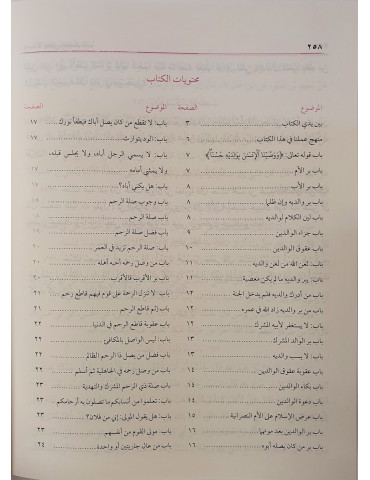 ٢٥٨
محتويات الكتاب
الموضوع الصفحة
بين يدي الكتاب ٣
منهج عملنا في هذا الكتاب ٦
باب قوله تعالى: ﴿وَوَصَّيْنَا الْإِنسَانَ بِوَالِدَيْهِ حُسْنًا﴾ ٧
باب بر الأم ٧
باب بر الأب ٨
باب بر والديه وإن ظلما ٨
باب لين الكلام لوالديه ٨
باب جزاء الوالدين ٩
باب عقوق الوالدين ١٠
باب: لعن الله من لعن والديه ١١
باب: يبر والديه ما لم يكن معصية ١١
باب: من أدرك والديه فلم يدخل الجنة ١٢
باب من بر والديه زاد الله في عمره ١٢
باب: لا يستغفر لأبيه المشرك ١٢
باب بر الوالد المشرك ١٣
باب: لا يسب والديه ١٣
باب عقوبة عقوق الوالدين ١٤
باب بكاء الوالدين ١٤
باب دعوة الوالدين ١٤
باب عرض الإسلام على الأم النصرانية ١٥
باب بر الوالدين بعد موتهما ١٦
باب بر من كان يصله أبوه ١٦
الموضوع الصفحة
باب: لا تقطع من كان يصل أباك فيطفأ نورك ١٧
باب: الود يتوارث ١٧
باب: لا يسمي الرجل أباه، ولا يجلس قبله،
ولا يمشي أمامه
باب: هل يكني أباه؟
باب وجوب صلة الرحم
باب صلة الرحم
باب فضل صلة الرحم
باب: صلة الرحم تزيد في العمر ٢٠
باب: من وصل رحمه أحبه أهله ٢٠
باب بر الأقرب فالأقرب ٢٠
باب: لا تنزل الرحمة على قوم فيهم قاطع رحم ٢١
باب إثم قاطع الرحم ٢١
باب عقوبة قاطع الرحم في الدنيا ٢٢
باب: ليس الواصل بالمكافئ ٢٢
باب فضل من يصل ذا الرحم الظالم ٢٢
باب من وصل رحمه في الجاهلية ثم أسلم ٢٢
باب صلة ذي الرحم المشرك والتهدية ٢٣
باب: تعلموا من أنسابكم ما تصلون به أرحامكم ٢٣
باب: هل يقول المولى: إني من فلان؟ ٢٣
باب: مولى القوم من أنفسهم ٢٣
باب من عال جاريتين أو واحدة ٢٤